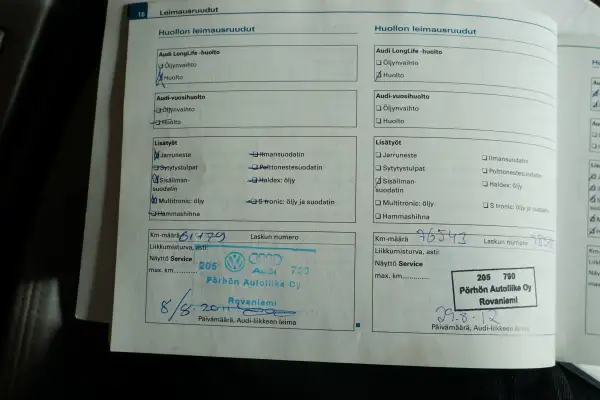 18 Leimausruudut
Huollon leimausruudut
Audi LongLife -huolto
Öljynvaihto
Huolto
Audi-vuosihuolto
Öljynvaihto
Huolto
Lisätyöt
Jarruneste
Ilmansuodatin
Sytytystulpat
Polttonestesuodatin
Sisäilman-
suodatin
Haldex: öljy
Multitronic: öljy
S tronic: öljy ja suodatin
Hammashihna
Km-määrä 61179 Laskun numero
Liikkumisturva, asti:
Näyttö Service
max. km
205 Audi 790
Pörhön Autoliike Oy
Rovaniemi
8/8.2011
Päivämäärä, Audi-liikkeen leima
Huollon leimausruudut
Audi LongLife -huolto
Öljynvaihto
Huolto
Audi-vuosihuolto
Öljynvaihto
Huolto
Lisätyöt
Jarruneste
Ilmansuodatin
Sytytystulpat
Polttonestesuodatin
Sisäilman-
suodatin
Haldex: öljy
Multitronic: öljy
S tronic: öljy ja suodatin
Hammashihna
Km-määrä 76543 Laskun numero
Liikkumisturva, asti:
Näyttö Service
max. km
205 790
Pörhön Autoliike Oy
Rovaniemi
29.8.12
Päivämäärä, Audi-liikkeen leima